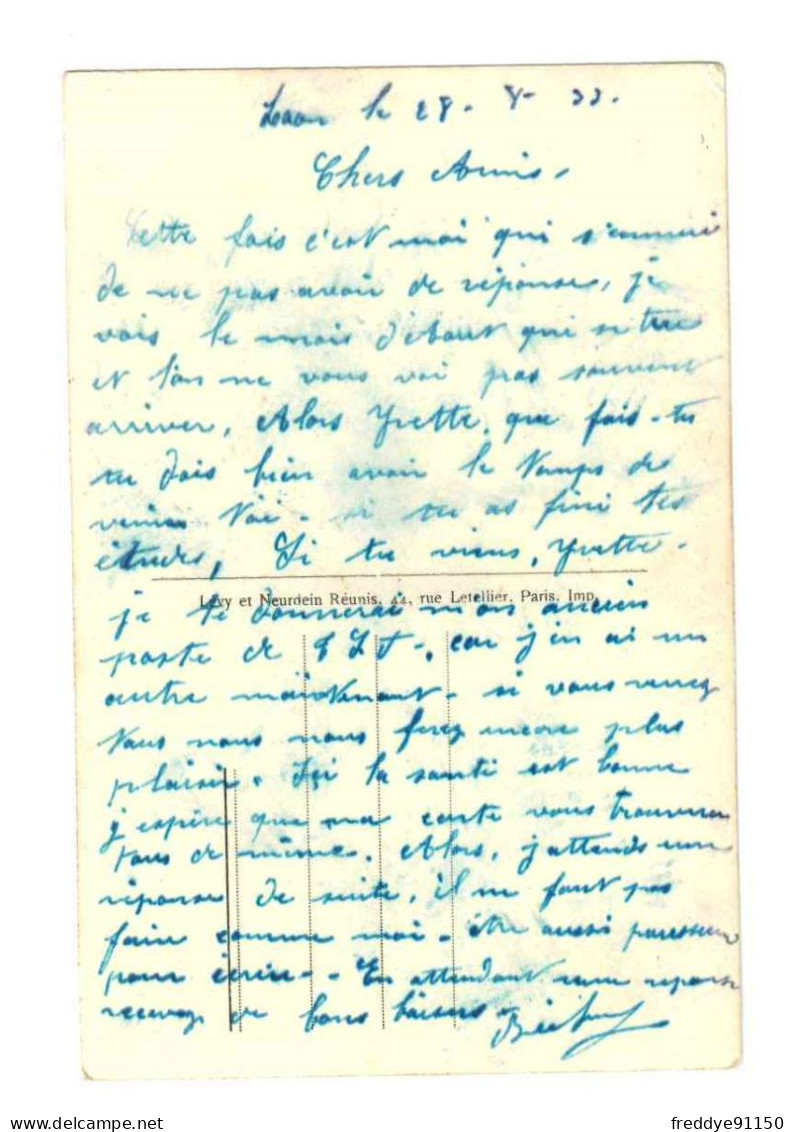 Laon le 28 - 8 - 33.
Chers Amis -
Cette fois c'est moi qui s'ennui
de ne pas avoir de réponse, je
vois le mois d'Aout qui se tire
et l'on ne vous voi pas souvent
arriver, Alors Yvette, que fais-tu
tu dois bien avoir le temps de
venir si tu as fini tes
études, Si tu viens, Yvette -
Lévy et Neurdein Réunis, 44, rue Letellier, Paris. Imp.
je te donnerai mon ancien
poste de car j'en ai un
autre maintenant - si vous venez
tous nous ferez encore plus
plaisir. Ici la santé est bonne
j'espère que ma carte vous trouvera
tous de même. Alors, j'attends une
réponse de suite, il ne faut pas
faire comme moi - être aussi paresseux
pour écrire - - En attendant une reponse
recevez de bons baisers -
delcampe.net
freddye91150